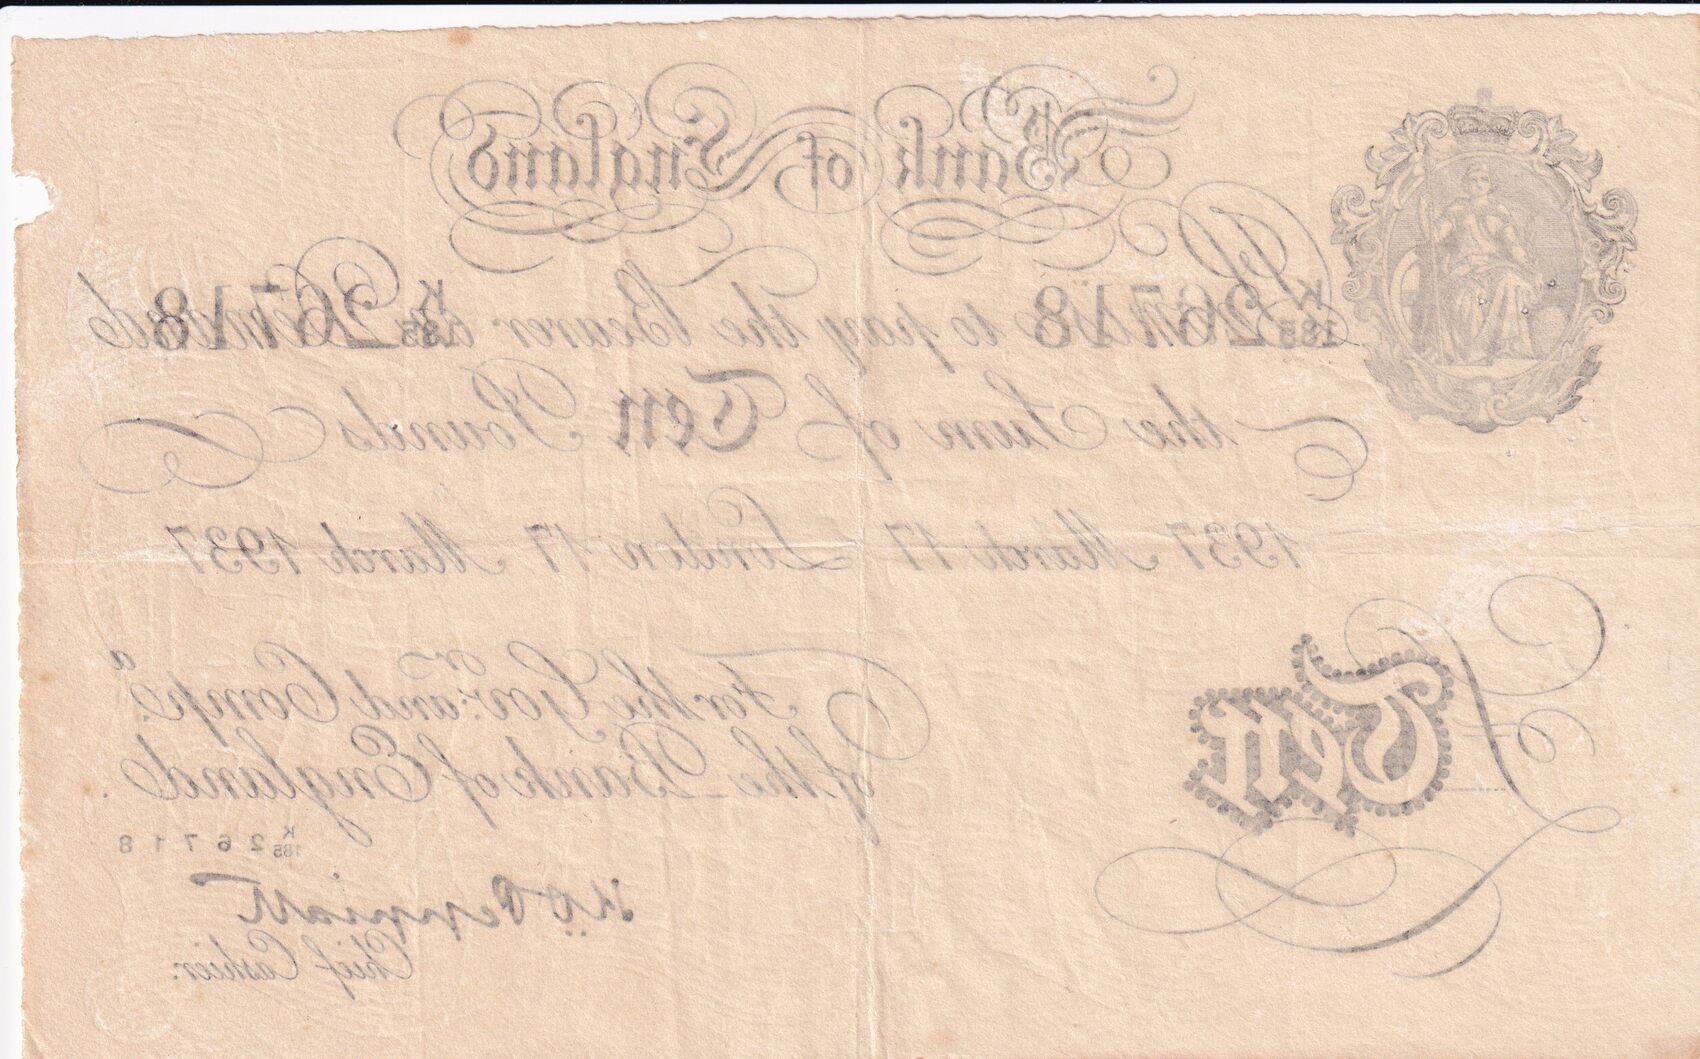 Bank of England
Promise to pay the Bearer on Demand
K
185 26718
K
185 26718
the Sum of Ten Pounds
1937 March 17 London 17 March 1937
For the Gov:r and Comp.a
of the Bank of England.
£ Ten
K
185 26718
K O Peppiatt
Chief Cashier.